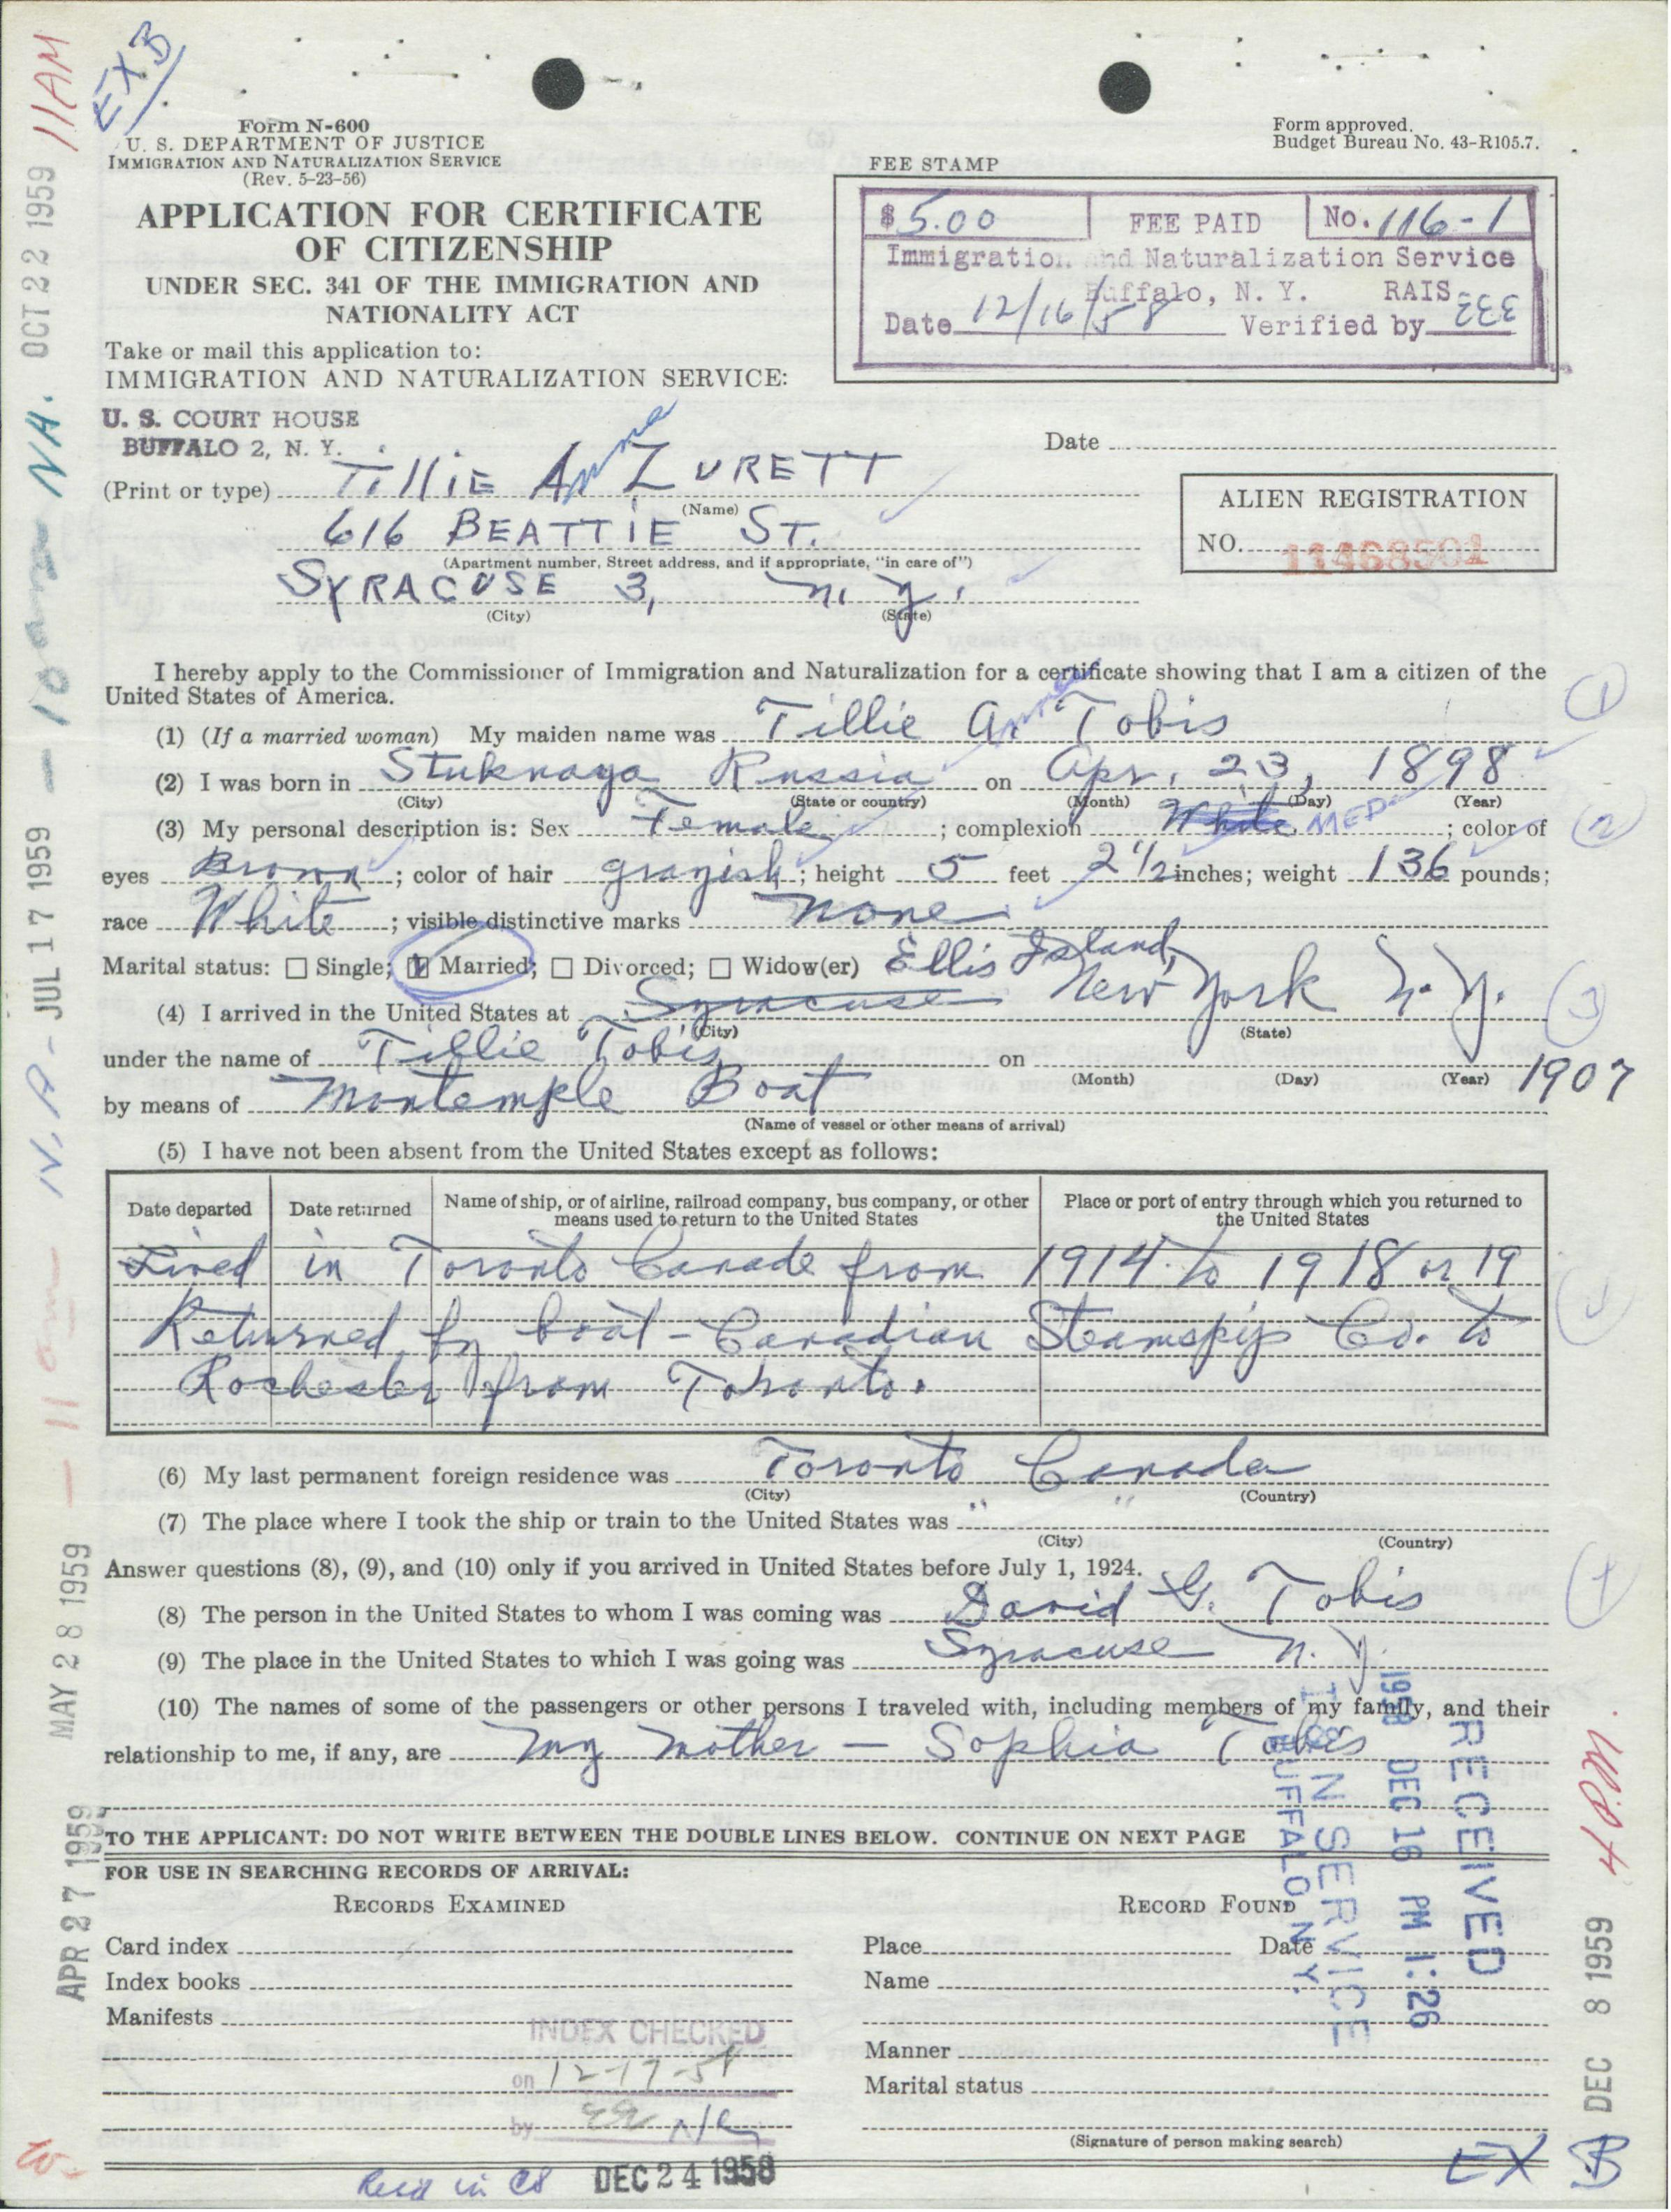 11AM
EX B
OCT 22 1959
Form N-600
U. S. DEPARTMENT OF JUSTICE
IMMIGRATION AND NATURALIZATION SERVICE
(Rev. 5-23-56)
Form approved.
Budget Bureau No. 43-R105.7.
APPLICATION FOR CERTIFICATE
OF CITIZENSHIP
UNDER SEC. 341 OF THE IMMIGRATION AND
NATIONALITY ACT
FEE STAMP
$5.00 FEE PAID No. 116-1
Immigration and Naturalization Service
Buffalo, N. Y. RAIS
Date 12/16/58 Verified by EEE
Take or mail this application to:
IMMIGRATION AND NATURALIZATION SERVICE:
U. S. COURT HOUSE
BUFFALO 2, N. Y.
Date
(Print or type) TilliE Anna ZURETT
(Name)
616 BEATTIE ST.
(Apartment number, Street address, and if appropriate, "in care of")
SYRACUSE 3, N. Y.
(City) (State)
ALIEN REGISTRATION
NO. 11468501
I hereby apply to the Commissioner of Immigration and Naturalization for a certificate showing that I am a citizen of the
United States of America.
(1) (If a married woman) My maiden name was Tillie Anna Tobis
(2) I was born in Stuknaya Russia on Apr. 23, 1898
(City) (State or country) (Month) (Day) (Year)
(3) My personal description is: Sex Female; complexion White MED; color of
eyes Brown; color of hair grayish; height 5 feet 2 1/2 inches; weight 136 pounds;
race White; visible distinctive marks none
Marital status: Single; Married; Divorced; Widow(er)
Ellis Island,
(4) I arrived in the United States at Syracuse New York N. Y.
(City) (State)
under the name of Tillie Tobis on 1907
(Month) (Day) (Year)
by means of Montemple Boat
(Name of vessel or other means of arrival)
(5) I have not been absent from the United States except as follows:
Date departed Date returned Name of ship, or of airline, railroad company, bus company, or other means used to return to the United States Place or port of entry through which you returned to the United States
Lived in Toronto Canada from 1914 to 1918 or 19
Returned by boat - Canadian Steamspip Co. to
Rochester from Toronto.
(6) My last permanent foreign residence was Toronto Canada
(City) (Country)
(7) The place where I took the ship or train to the United States was " "
(City) (Country)
Answer questions (8), (9), and (10) only if you arrived in United States before July 1, 1924.
(8) The person in the United States to whom I was coming was David G. Tobis
(9) The place in the United States to which I was going was Syracuse N. Y.
(10) The names of some of the passengers or other persons I traveled with, including members of my family, and their
relationship to me, if any, are My mother - Sophia Tobis
TO THE APPLICANT: DO NOT WRITE BETWEEN THE DOUBLE LINES BELOW. CONTINUE ON NEXT PAGE
FOR USE IN SEARCHING RECORDS OF ARRIVAL:
RECORDS EXAMINED
RECORD FOUND
Card index
Place Date
Index books
Name
Manifests
INDEX CHECKED
on 12-17-58
by
Manner
Marital status
(Signature of person making search)
DEC 24 1958
EX B
RECEIVED
1958 DEC 16 PM 1:26
I & N SERVICE
BUFFALO, N.Y.
4 P.M.
DEC 8 1959
JUL 17 1959
MAY 28 1959
APR 27 1959